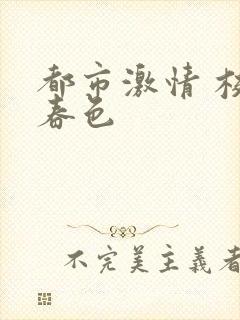 都市激情
春色
不完美主義者